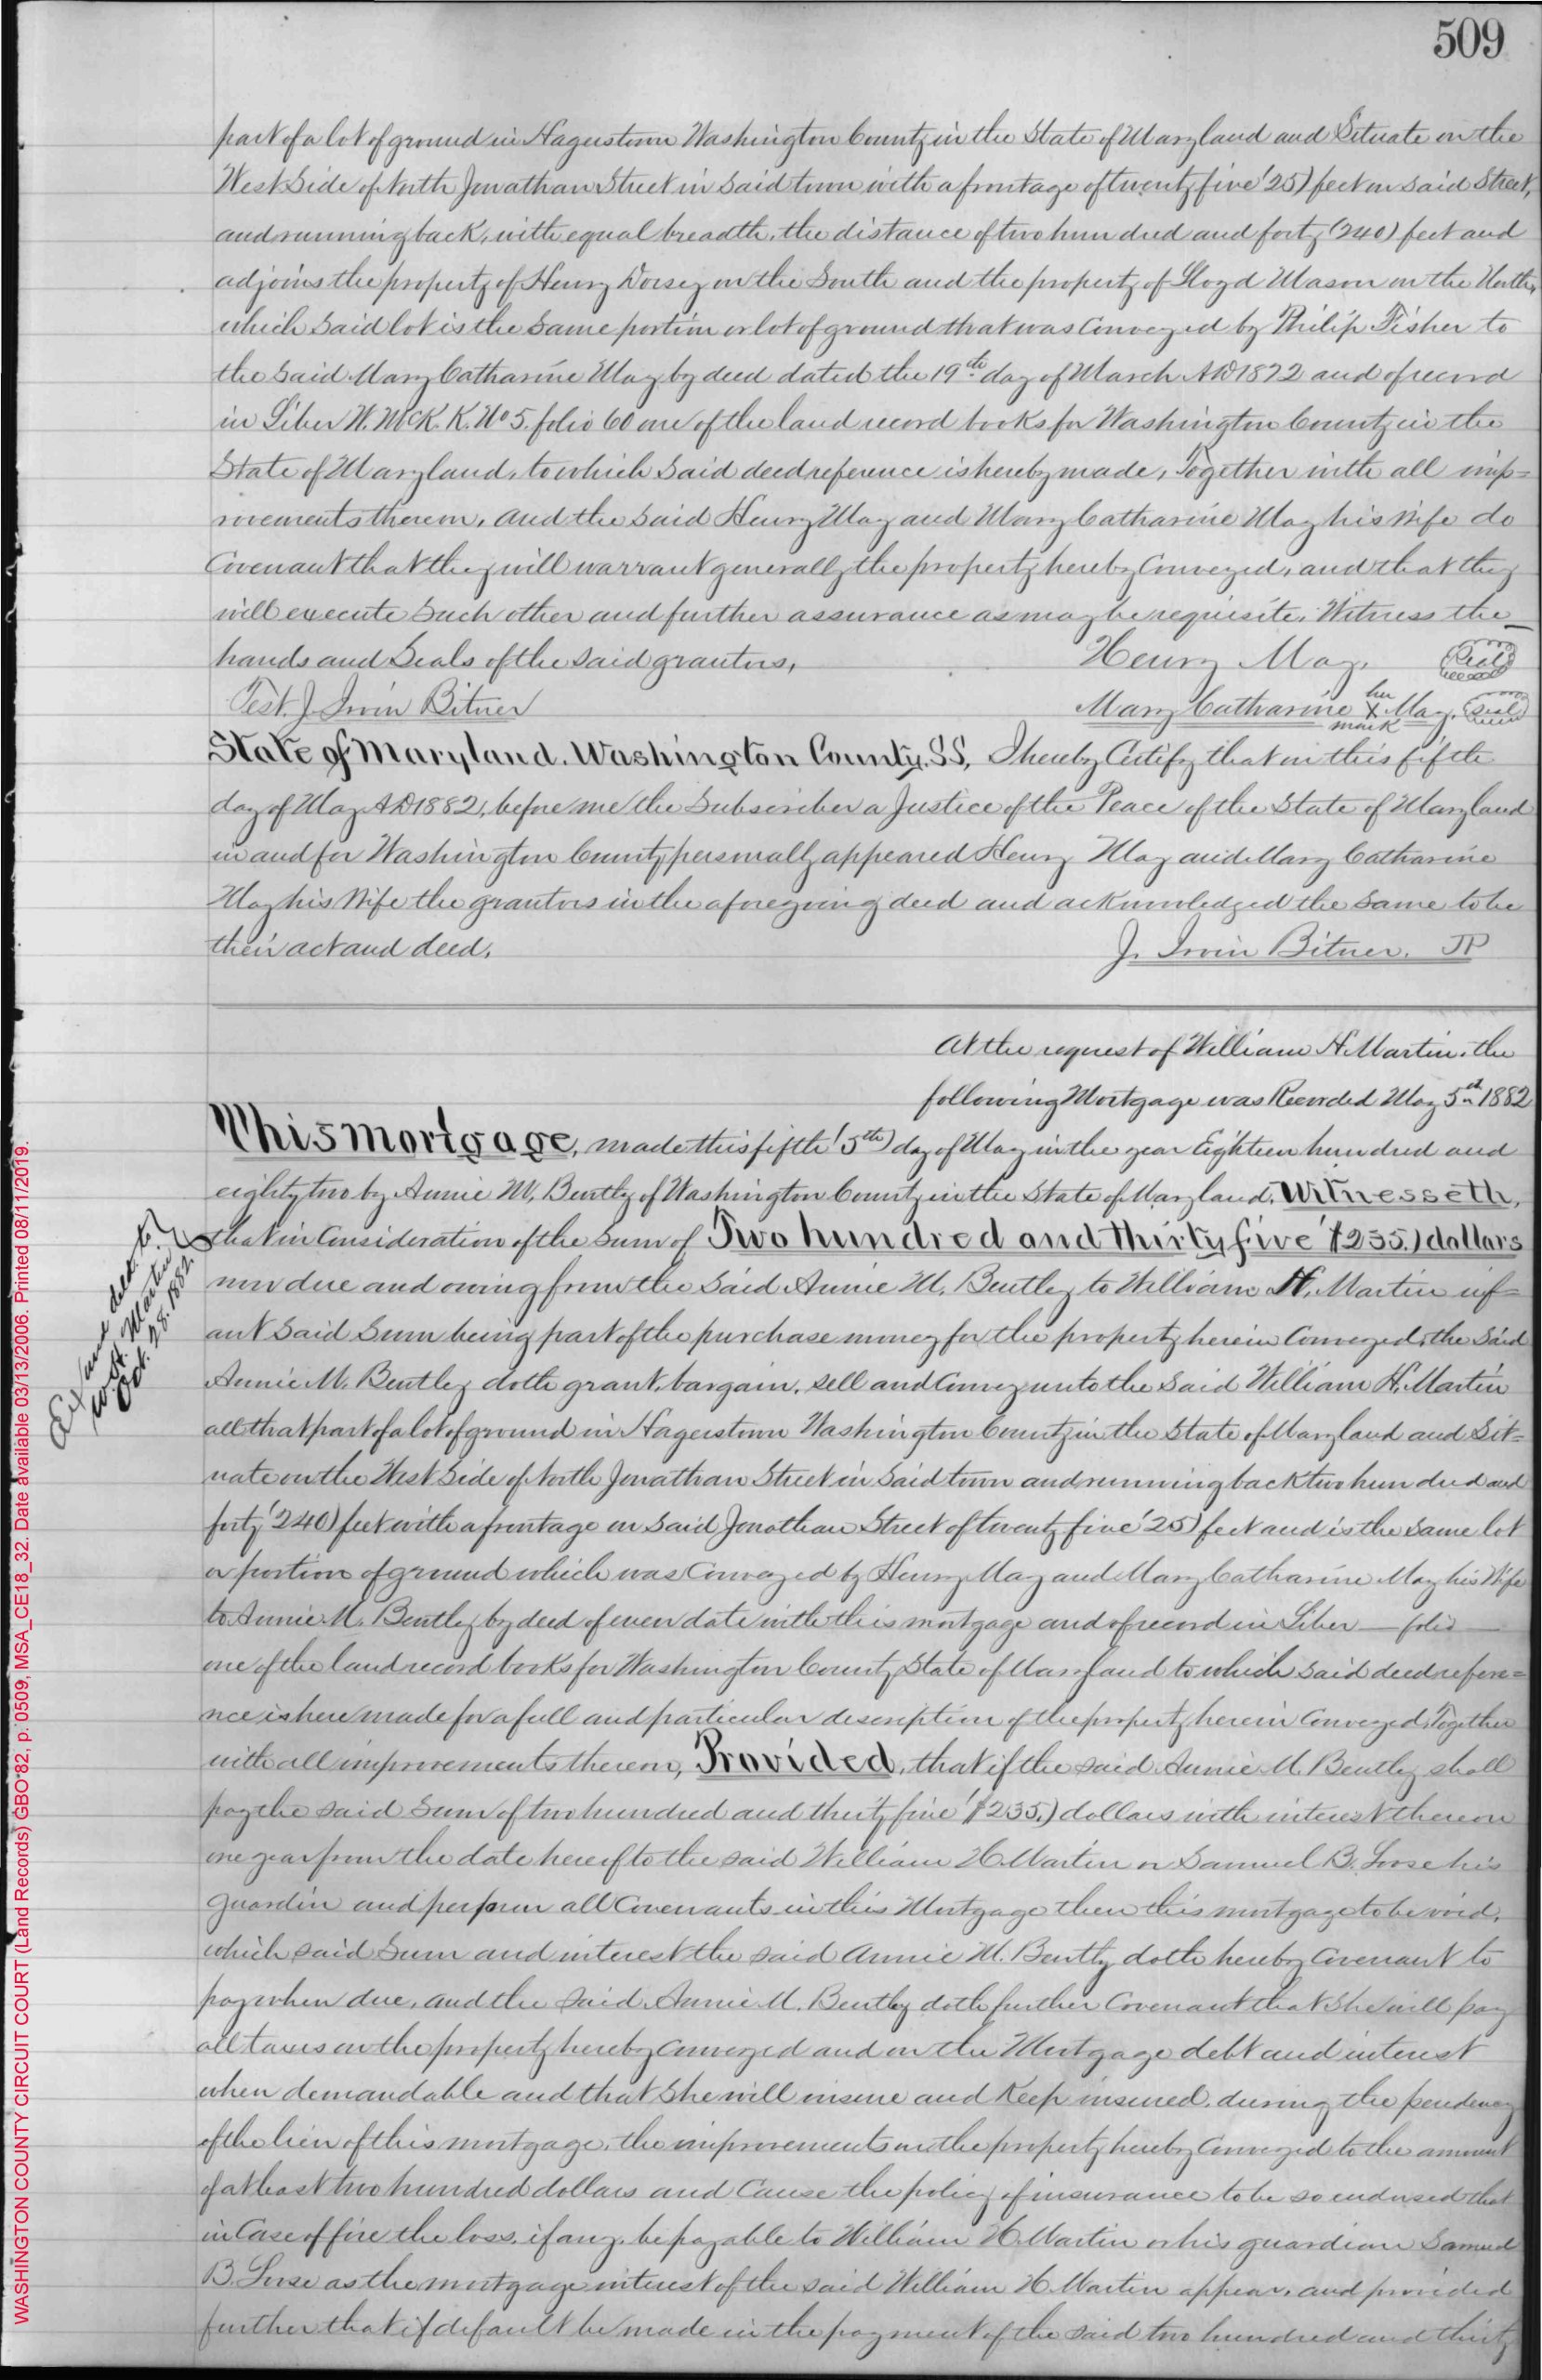 509
part of a lot of ground in Hagerstown Washington County in the State of Maryland and Situate on the
West Side of North Jonathan Street in said town with a frontage of twenty five (25) feet on said Street,
and running back, with equal breadth, the distance of two hundred and forty (240) feet and
adjoins the property of Henry Dorsey on the South and the property of Lloyd Mason on the North,
which said lot is the same portion or lot of ground that was Conveyed by Philip Fisher to
the said Mary Catharine May by deed dated the 19th day of March AD 1872 and of record
in Liber W. McK. K. No 5. folio 60 one of the land record books for Washington County in the
State of Maryland, to which said deed reference is hereby made, Together with all imp=
rovements thereon, and the said Henry May and Mary Catharine May his Wife do
Covenant that they will warrant generally the property hereby Conveyed, and that they
will execute such other and further assurance as may be requisite, Witness the
hands and Seals of the said grantors, Henry May. Seal
Test. J. Irvin Bitner Mary Catharine her X mark May. Seal
State of Maryland. Washington County, SS, I hereby Certify that on this fifth
day of May AD 1882, before me the Subscriber a Justice of the Peace of the State of Maryland
in and for Washington County personally appeared Henry May and Mary Catharine
May his Wife the grantors in the aforegoing deed and acknowledged the same to be
their act and deed. J. Irvin Bitner. JP
At the request of William H. Martin. the
following Mortgage was Recorded May 5th 1882
This mortgage, made this fifth (5th) day of May in the year Eighteen hundred and
eighty two by Annie M. Bently of Washington County in the State of Maryland. Witnesseth,
that in Consideration of the Sum of Two hundred and thirty five ($235.) dollars
now due and owing from the said Annie M. Bentley to William H. Martin inf=
ant said sum being part of the purchase money for the property herein Conveyed, the said
Annie M. Bentley doth grant, bargain, sell and Convey unto the said William H. Martin
all that part of a lot of ground in Hagerstown Washington County in the State of Maryland and Sit=
uate on the West Side of North Jonathan Street in said town and running back two hundred and
forty (240) feet with a frontage on said Jonathan Street of twenty five (25) feet and is the same lot
or portion of ground which was Conveyed by Henry May and Mary Catharine May his Wife
to Annie M. Bentley by deed of even date with this mortgage and of record in Liber — folio —
one of the land record books for Washington County State of Maryland to which said deed refere=
nce is here made for a full and particular description of the property herein Conveyed, Together
with all improvements thereon, Provided, that if the said Annie M. Bentley shall
pay the said Sum of two hundred and thirty five ($235.) dollars with interest thereon
one year from the date hereof to the said William H. Martin or Samuel B. Loose his
guardin and perform all Covenants in this Mortgage then this mortgage to be void,
which said Sum and interest the said Annie M. Bently doth hereby Covenant to
pay when due, and the said Annie M. Bentley doth further Covenant that she will pay
all taxes on the property hereby Conveyed and on the Mortgage debt and interest
when demandable and that she will insure and Keep insured, during the pendency
of the lien of this mortgage, the improvements on the property hereby Conveyed to the amount
of at least two hundred dollars and Cause the policy of insurance to be so endorsed that
in Case of fire the loss, if any, be payable to William H. Martin or his guardian Samuel
B. Loose as the mortgage interest of the said William H. Martin appear, and provided
further that if default be made in the payment of the said two hundred and thirty
Ex and deld. to
W. H. Martin
Oct. 28. 1882.
WASHINGTON COUNTY CIRCUIT COURT (Land Records) GBO 82, p. 0509, MSA_CE18_32. Date available 03/13/2006. Printed 08/11/2019.